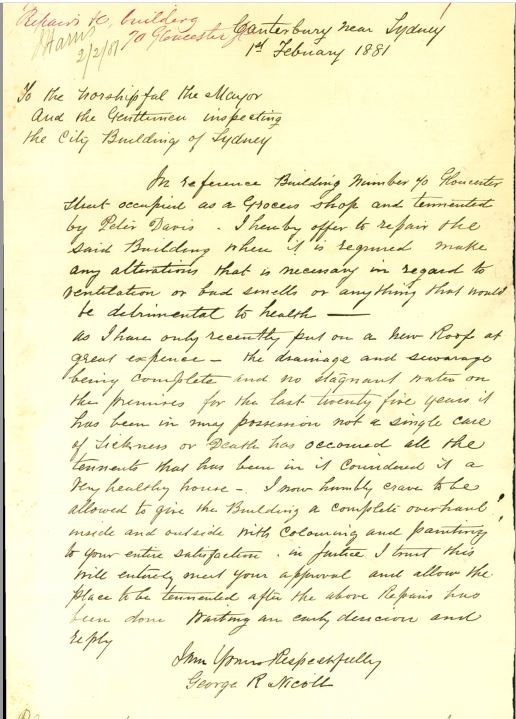 Repairs to building
70 Gloucester St
Harris
2/2/81
Canterbury near Sydney
1st February 1881
To the worshipful the Mayor
And the Gentlemen inspecting
the City Building of Sydney
In reference Building Number 70 Gloucester
Street occupied as a Grocers shop and tennented
by Peter Davis - I hereby offer to repair the
said Building when it is required make
any alterations that is necessary in regard to
ventilation or bad smells or anything that would
be detrimental to health —
as I have only recently put on a new Roof at
great expence - the drainage and sewarage
being complete and no stagnant water on
the premises for the last twenty five years it
has been in my possession not a single case
of Sickness or Death has occurred all the
tennents that has been in it considered it a
very healthy house - I now humbly crave to be
allowed to give the Building a complete overhaul
inside and outside with Colouring and painting
to your entire satisfaction. in Justice I trust this
will entirely meet your approval and allow the
place to be tennented after the above Repairs has
been done Waiting an early decision and
reply
I am Yours Respectfully
George R Nicoll